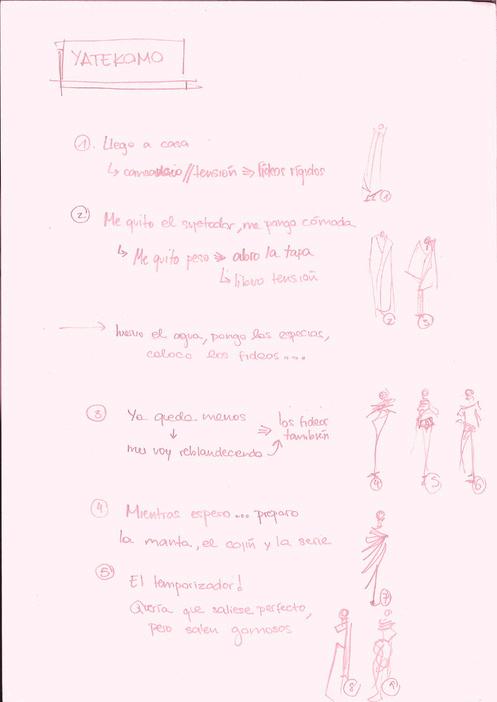 YATEKOMO
1. Llego a casa
↳ cansancio // tensión ⇒ fideos rígidos
1
2 Me quito el sujetador, me pongo cómoda
↳ Me quito peso ⇒ abro la tapa
↳ libero tensión
2 3
→ hiervo el agua, pongo las especias,
coloco los fideos...
3 Ya queda menos ⇒ los fideos
↓ también
me voy reblandeciendo
4 5 6
4 Mientras espero... preparo
la manta, el cojín y la serie
7
5 El temporizador!
Quería que saliese perfecto,
pero salen gomosos
8 9